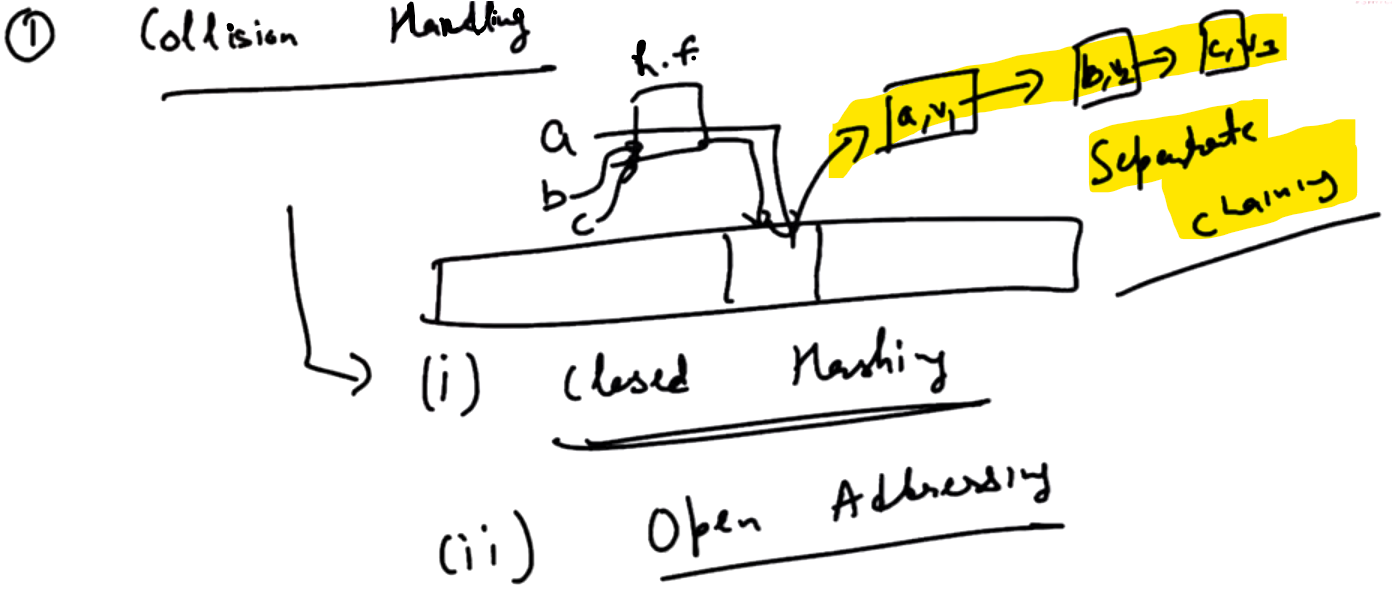 ① Collision Handling
h.f.
a
b
c
a,v1
b,v2
c,v3
Separate
chaining
(i) Closed Hashing
(ii) Open Addressing